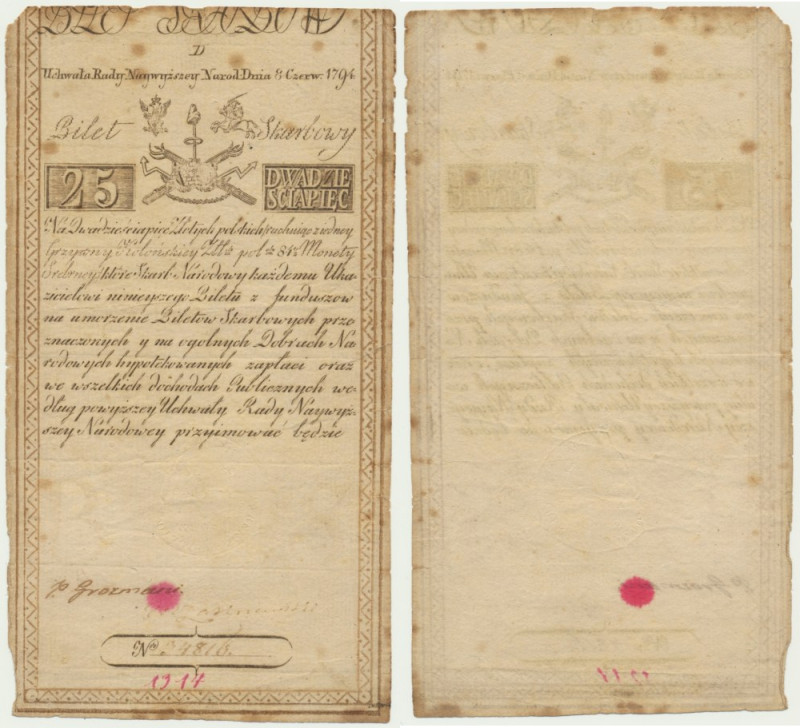 BILET SKARBOWY
D
Uchwała Rady Naywyższey Narod: Dnia 8 Czerw: 1794
Bilet Skarbowy
25 DWADZIE
ŚCIAPIĘC
Na Dwadzieściapięc Złotych polskich rachuiąc z iedney
Grzywny Kolońskiey Złt: pol: 84½ Monety
Srebrney które Skarb Narodowy każdemu Uka
zicielowi ninieyszego Biletu z funduszow
na umorzenie Biletow Skarbowych prze
znaczonych y na ogolnych Dobrach Na
rodowych hypotekowanych zapłaci oraz
we wszelkich dochodach Publicznych we
dług powyższey Uchwały Rady Naywyż
szey Narodowey przyimować będzie
P Grozmani
No 34816.
1917